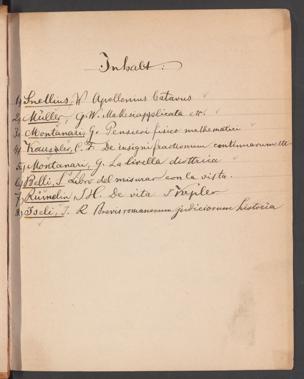 Inhalt.
1) Snellius, W. Apollonius Batavus
2) Müller, G. W. Mathesis applicata etc.
3) Montanari, G. Pensieri fisico mathematici
4) Kausler, C. F. De insigni fractionum continuarum etc
5) Montanari, G. La livella diottrica
6) Belli, S. Libro del misurar con la vista.
7) Rümelin, J. H. De vita J Kepler
8) Iseli, J. R. Brevis romanorum judiciorum historia